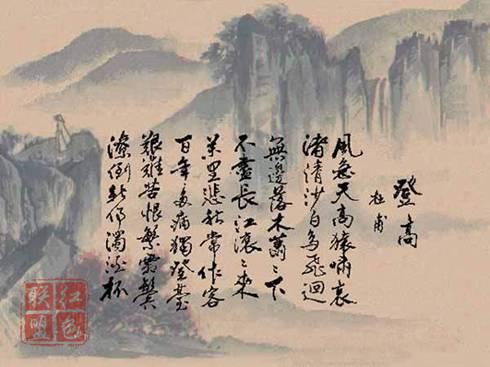 登高
杜甫
風急天高猿嘯哀
渚清沙白鳥飛迴
無邊落木蕭〻下
不盡長江滾〻來
萬里悲秋常作客
百年多病獨登臺
艱難苦恨繁霜鬢
潦倒新停濁酒杯
紅色
聯盟